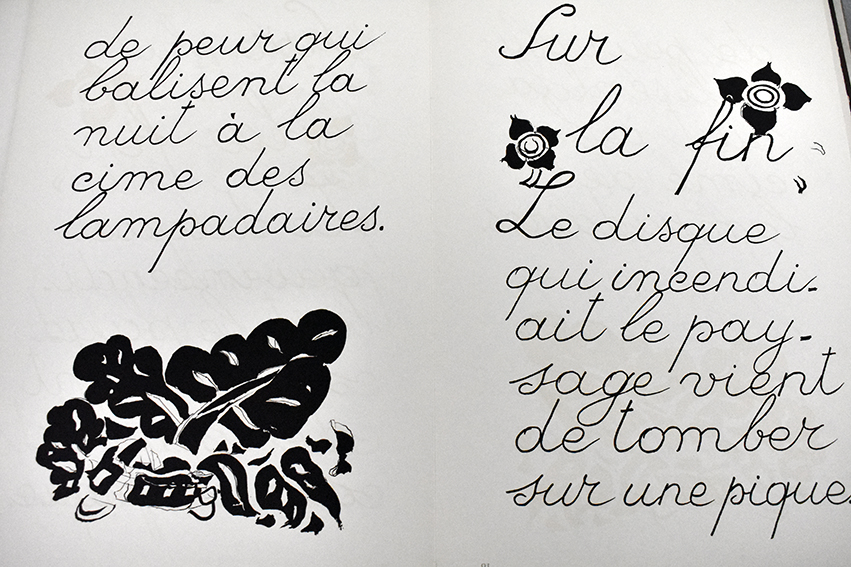 de peur qui
balisent la
nuit à la
cime des
lampadaires.
Sur
la fin
Le disque
qui incendi-
ait le pay-
sage vient
de tomber
sur une pique